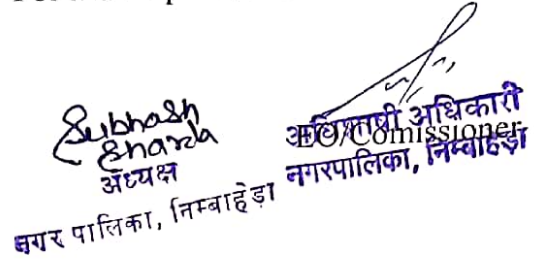 Subhash
Sharda
अध्यक्ष
नगर पालिका, निम्बाहेड़ा
अधिशाषी अधिकारी
EO/Comissioner
नगरपालिका, निम्बाहेड़ा